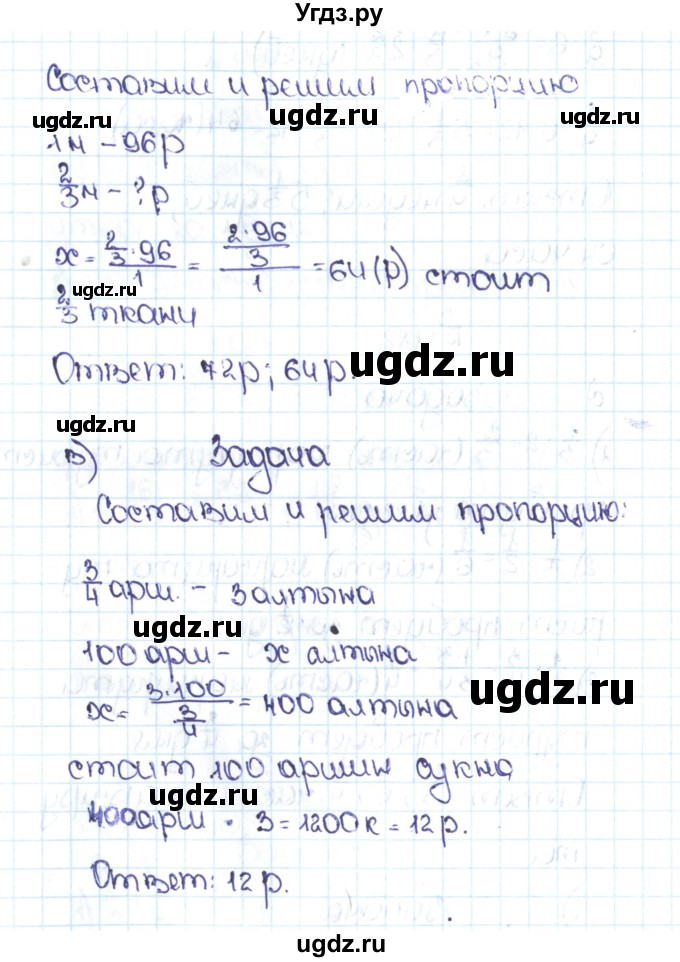 Угдз.ру
Составим и решим пропорцию
ugdz.ru ugdz.ru ugdz.ru
1м - 96р
2/3 м - ? р
x = (2/3 · 96)/1 = (2·96/3)/1 = 64 (р) стоит
ugdz.ru
2/3 ткани
Ответ: 72р; 64р.
ugdz.ru
ugdz.ru
в) Задача
Составим и решим пропорцию:
3/4 арш. - 3 алтына
ugdz.ru
100 арш - x алтына
x = (3·100)/(3/4) = 400 алтына
ugdz.ru
стоит 100 аршин сукна
ugdz.ru
400арш · 3 = 1200к = 12р.
Ответ: 12р.
ugdz.ru
ugdz.ru